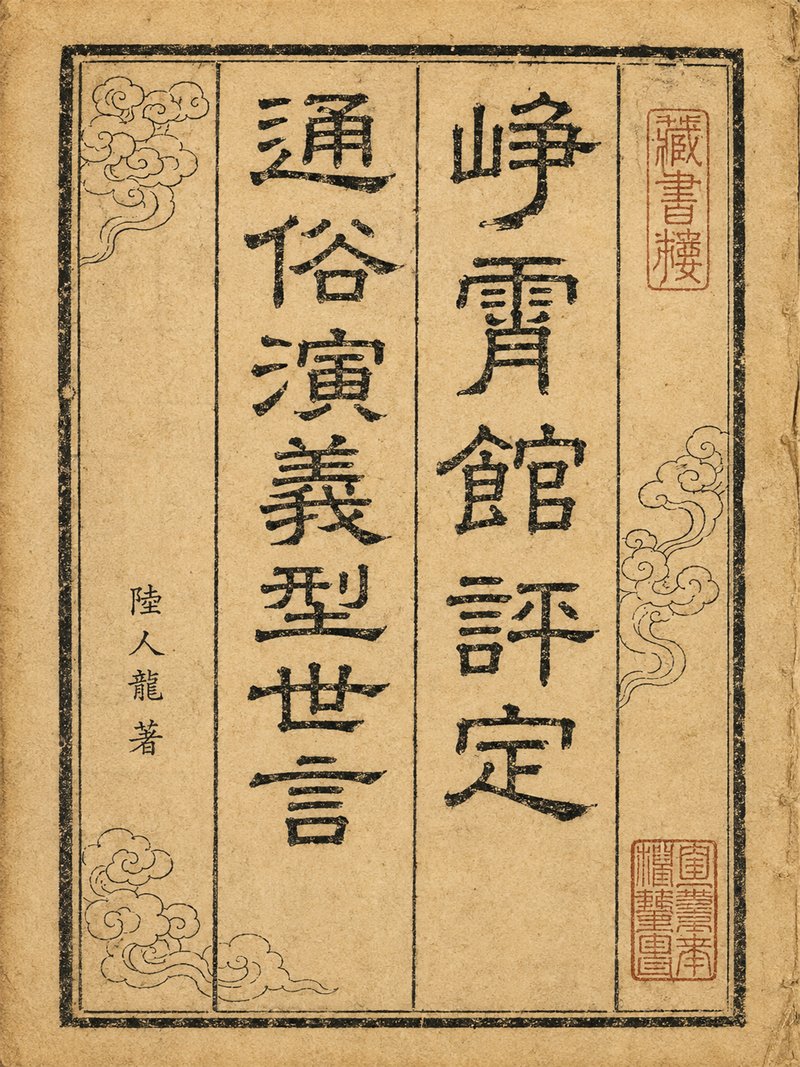 藏書樓
峥霄館評定
通俗演義型世言
陸人龍著